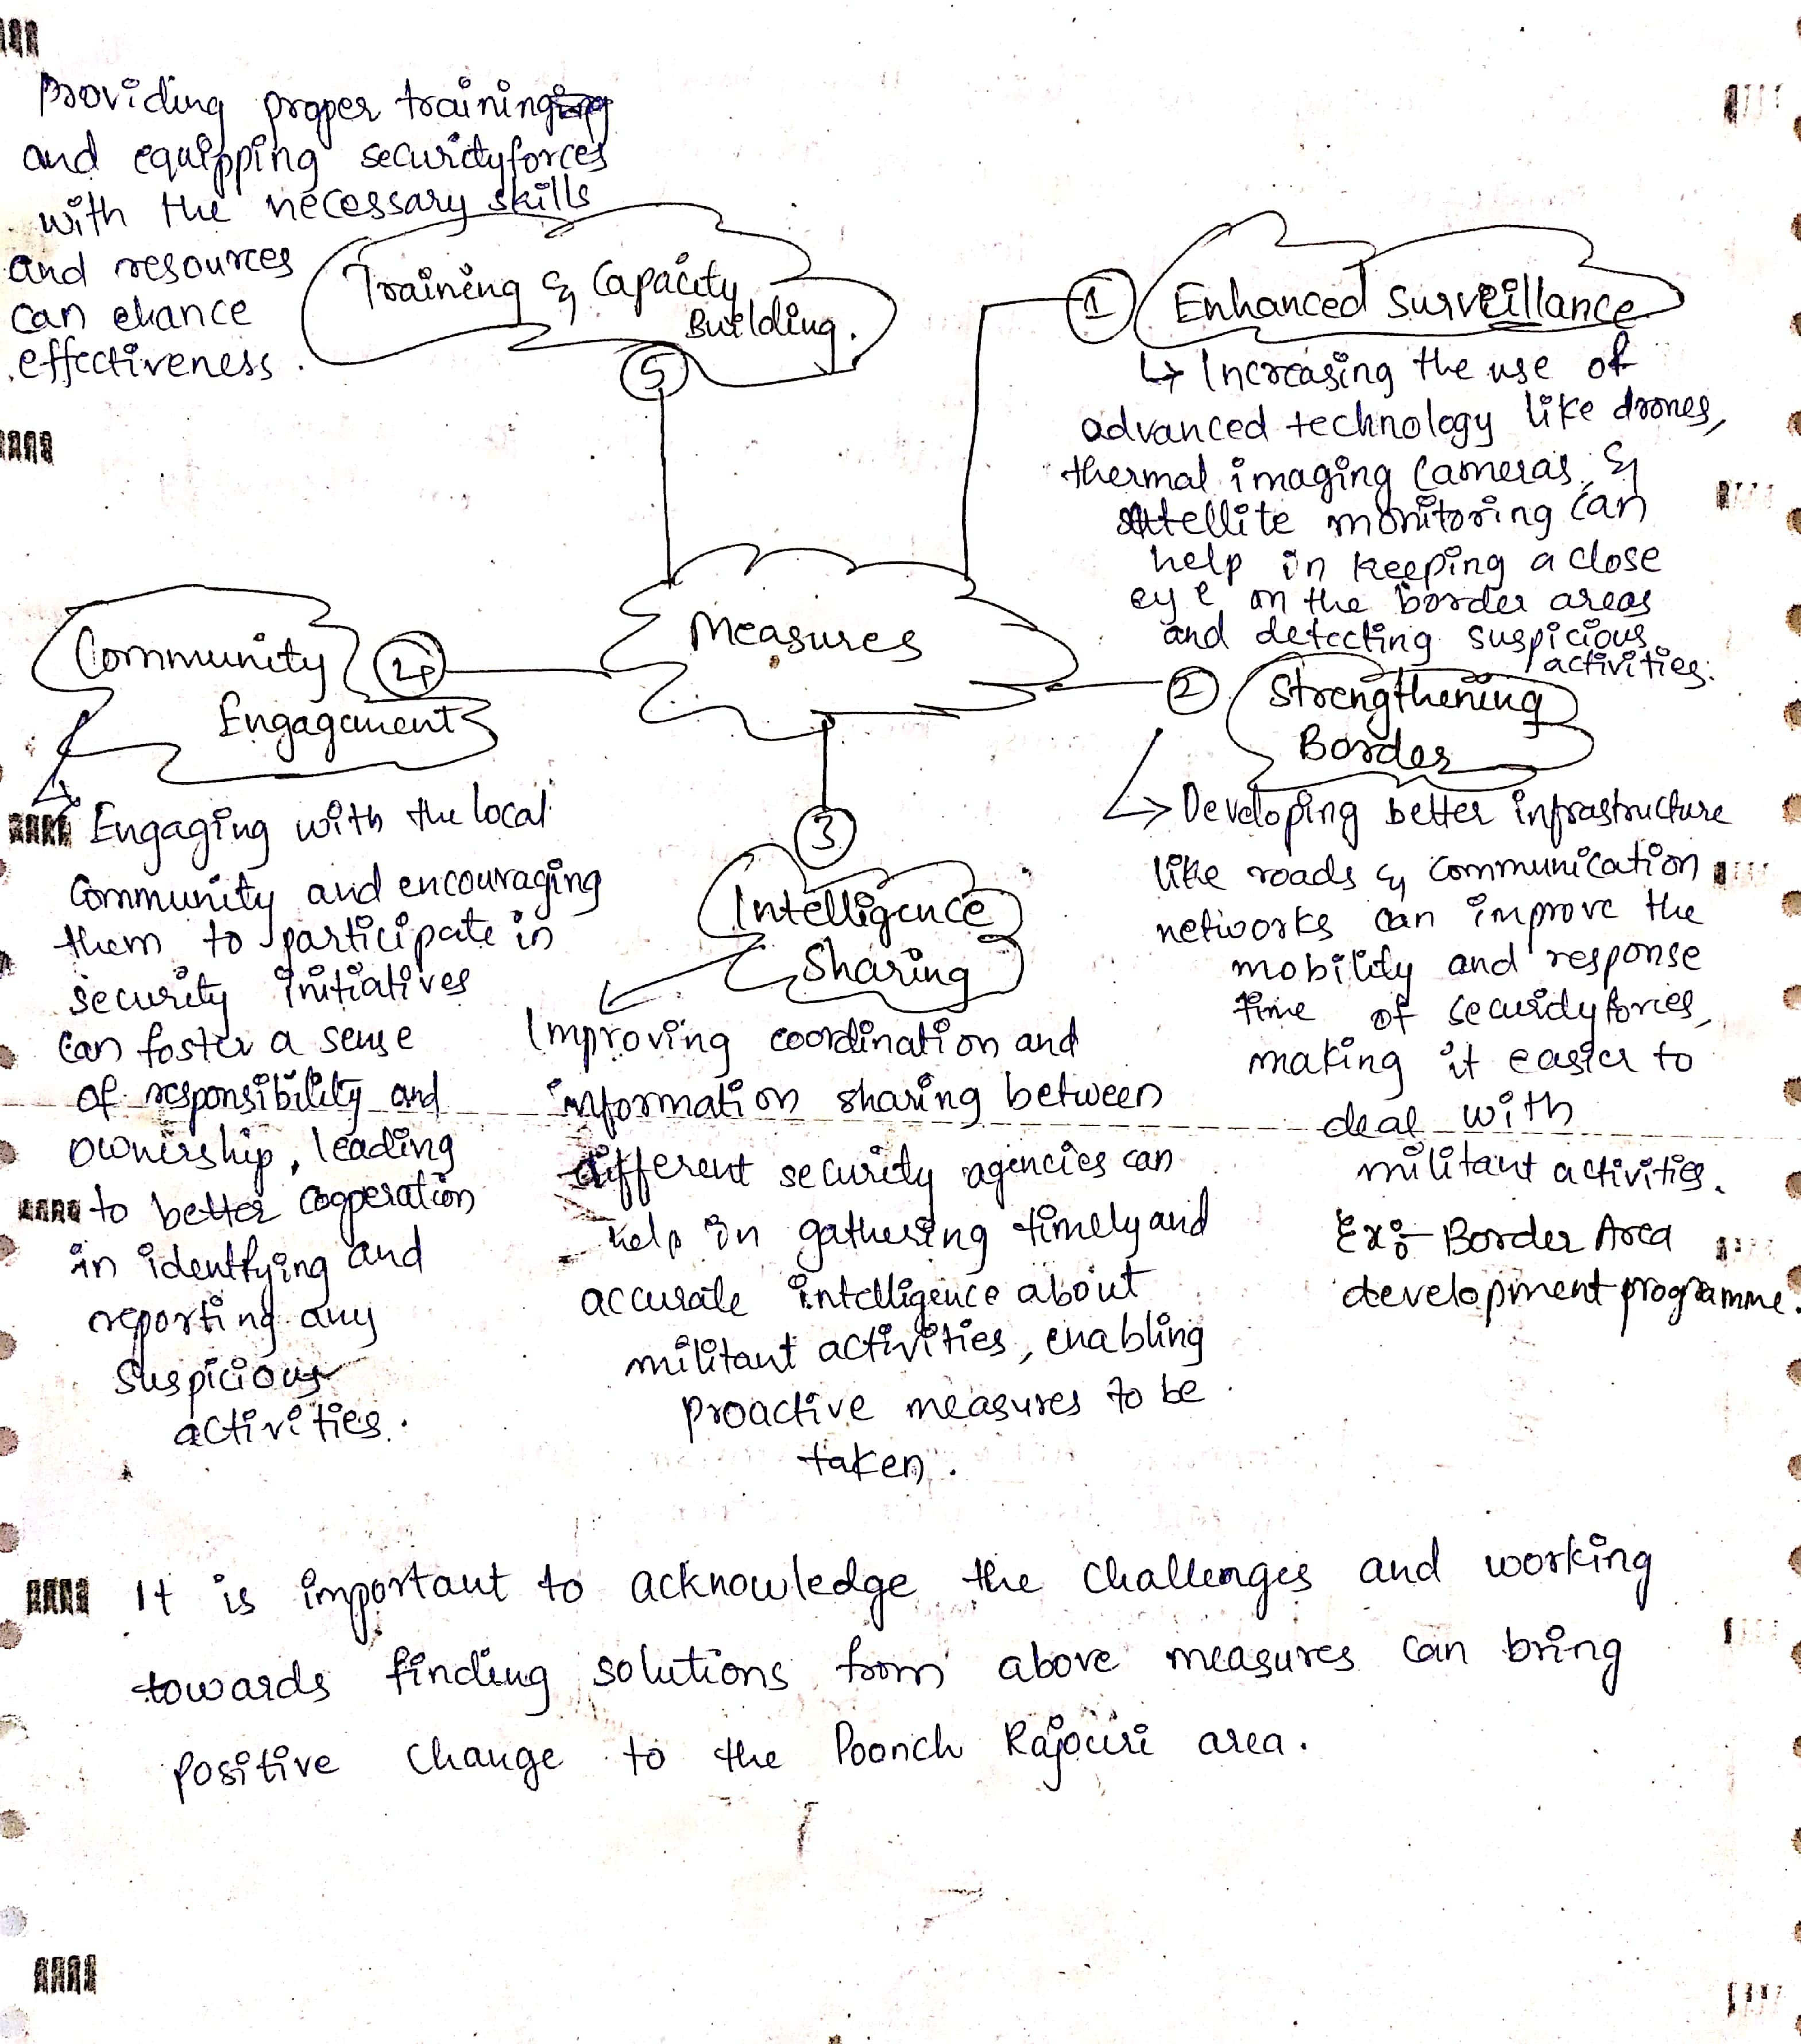 Measures
1 Enhanced Surveillance
↳ Increasing the use of
advanced technology like drones,
thermal imaging cameras, &
satellite monitoring can
help in keeping a close
eye on the border areas
and detecting suspicious
activities.
2 Strengthening
Border
→ Developing better infrastructure
like roads & communication
networks can improve the
mobility and response
time of security forces,
making it easier to
deal with
militant activities.
Ex:- Border Area
development programme.
3
Intelligence
Sharing
Improving coordination and
information sharing between
different security agencies can
help in gathering timely and
accurate intelligence about
militant activities, enabling
proactive measures to be
taken.
Community 4
Engagement
Engaging with the local
Community and encouraging
them to participate in
security initiatives
can foster a sense
of responsibility and
ownership, leading
to better cooperation
in identfying and
reporting any
Suspicious
activities.
Training & Capacity
Building.
5
Providing proper training
and equipping security forces
with the necessary skills
and resources
can ehance
effectiveness.
It is important to acknowledge the challenges and working
towards finding solutions from above measures can bring
positive change to the Poonch Rajouri area.